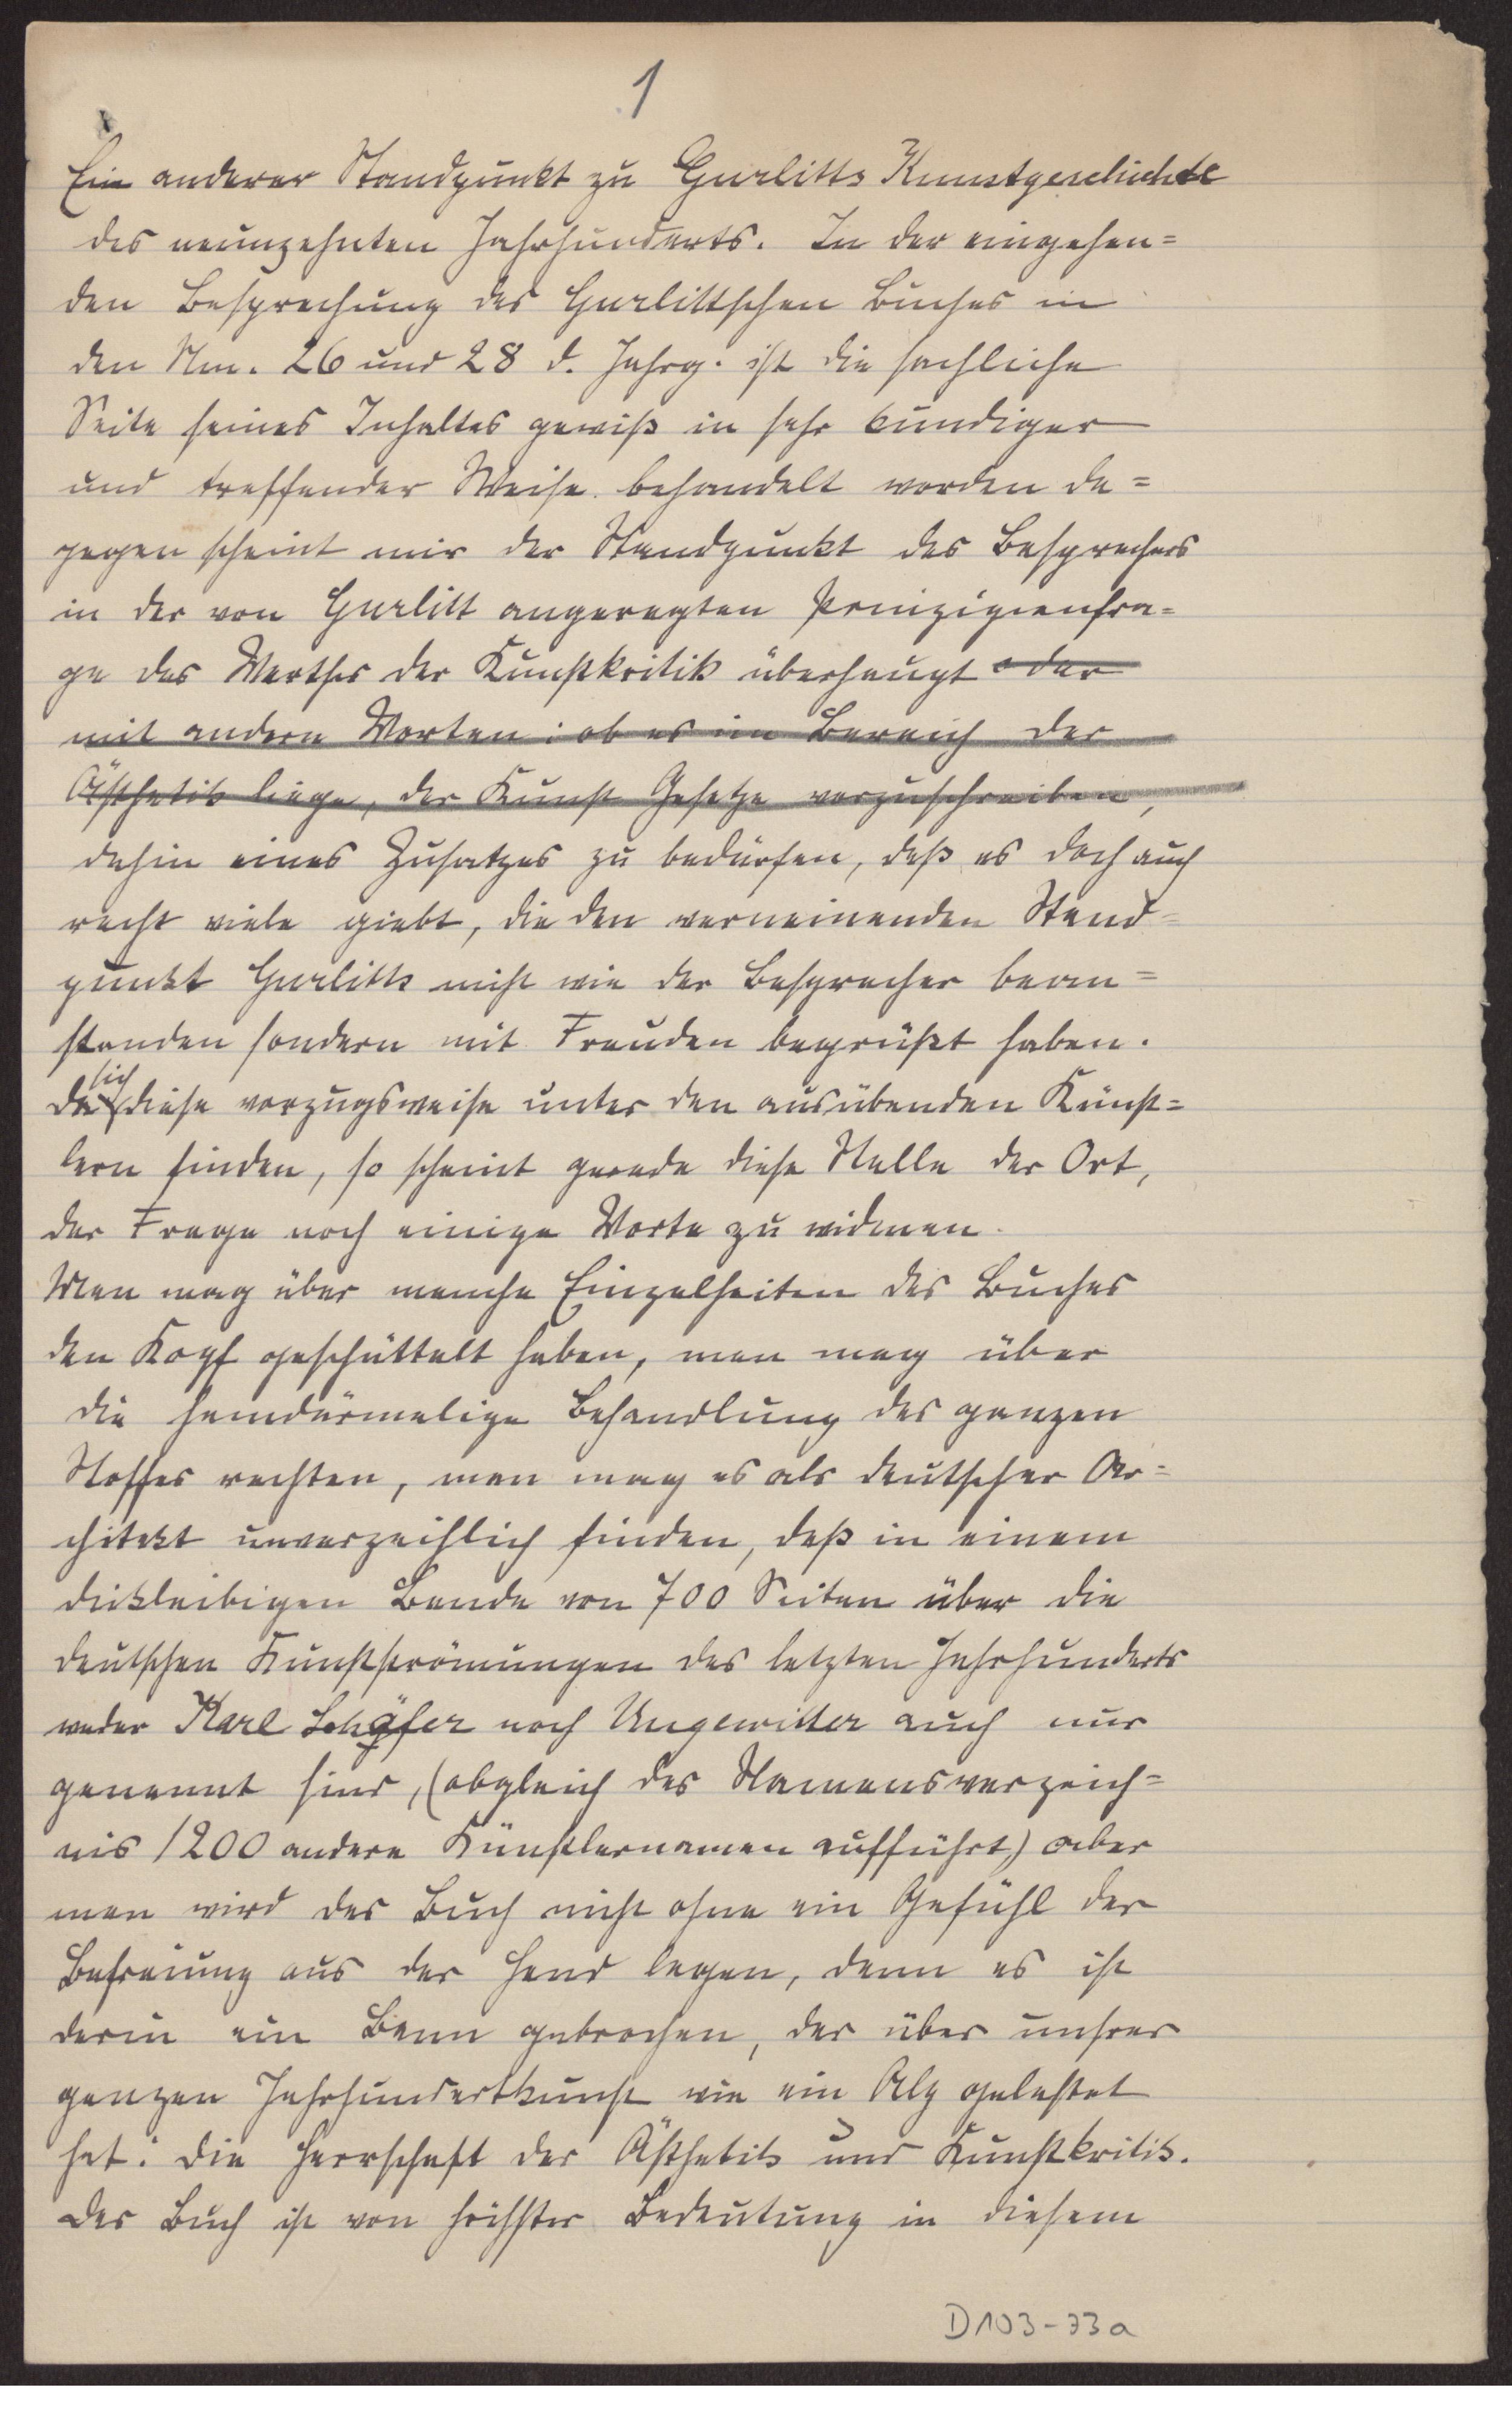 1
Ein anderer Standpunkt zu Gurlitts Kunstgeschichte
des neunzehnten Jahrhunderts. In der eingehen=
den Besprechung des Gurlittschen Buches in
den Nrn. 26 und 28 d. Jahrg. ist die sachliche
Seite seines Inhaltes gewiß in sehr kundiger
und treffender Weise behandelt worden da=
gegen scheint mir der Standpunkt des Besprechers
in der von Gurlitt angeregten Prinzipienfra=
ge des Werthes der Kunstkritik überhaupt oder
mit andern Worten: ob es im Bereich der
Ästhetik liege, der Kunst Gesetze vorzuschreiben,
dahin eines Zusatzes zu bedürfen, daß es doch auch
recht viele giebt, die den verneinenden Stand=
punkt Gurlitts nicht wie der Besprecher bean=
standen sondern mit Freuden begrüßt haben.
Da sich diese vorzugsweise unter den ausübenden Künst=
lern finden, so scheint gerade diese Stelle der Ort,
der Frage noch einige Worte zu widmen.
Man mag über manche Einzelheiten des Buches
den Kopf geschüttelt haben, man mag über
die hemdärmelige Behandlung des ganzen
Stoffes rechten, man mag es als deutscher Ar=
chitekt unverzeihlich finden, daß in einem
dickleibigen Bande von 700 Seiten über die
deutschen Kunstströmungen des letzten Jahrhunderts
weder Karl Schäfer noch Ungewitter auch nur
genannt sind, (obgleich das Namensverzeich=
nis 1200 andere Künstlernamen aufführt) aber
man wird das Buch nicht ohne ein Gefühl der
Befreiung aus der Hand legen, denn es ist
darin ein Bann gebrochen, der über unsrer
ganzen Jahrhundertkunst wie ein Alp gelastet
hat: die Herrschaft der Ästhetik und Kunstkritik.
Das Buch ist von höchster Bedeutung in diesem
D103-73a